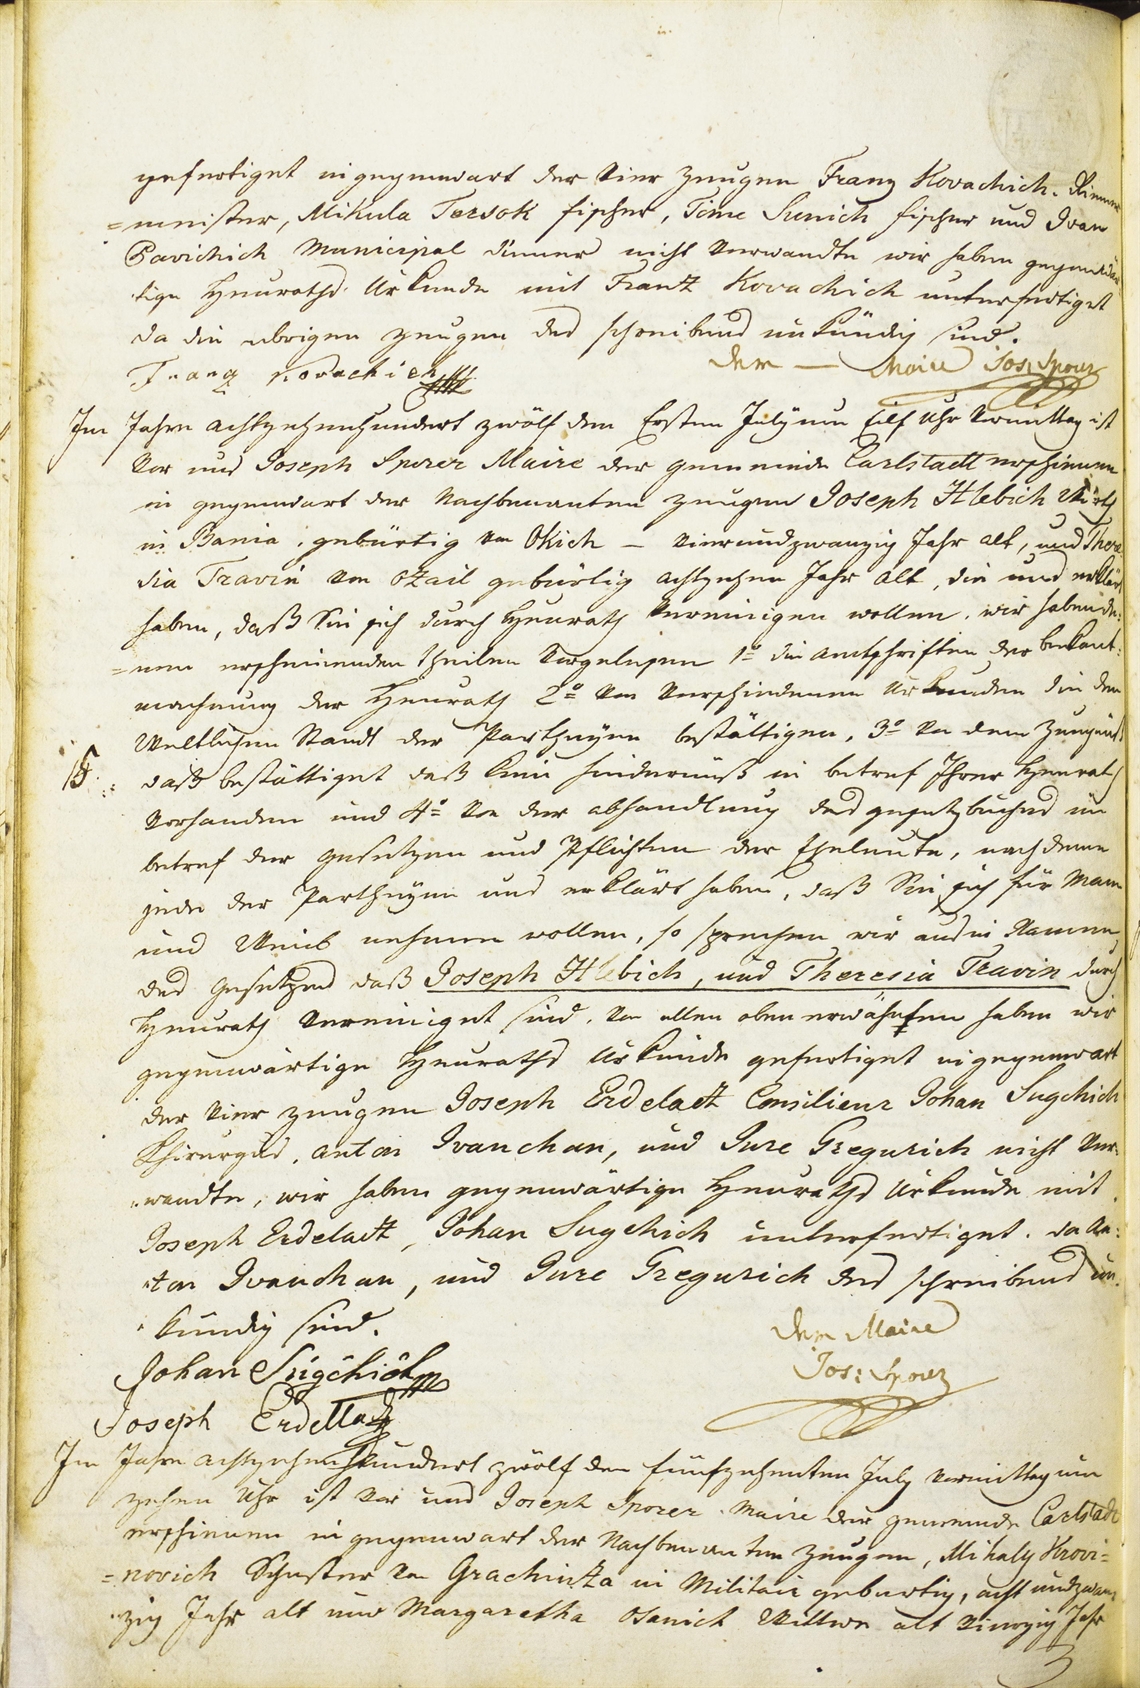 gefertiget in gegenwart der Vier Zeugen Franz Kovachich. Riemer
=meister, Mikula Tersok fischer, Time Sunich fischer und Ivan
Pavichich Municipal diener nicht Verwandte wir haben gegenwär
tige Heuraths Urkunde mit Frantz Kovachich unterfertiget
da die ubrigen zeugen des schreibens unkündig sind.
Franz Kovachich
Der — Maire Jos: Sporer
Im Jahre achtzehenhundert zwölf den Ersten July um Eilf Uhr Vormittag ist
Vor uns Joseph Sporer Maire der gemeinde Carlstadt erschienen
in gegenwart der Nachbenanten zeugen Joseph Hlebich Wirth
in Bania, gebürtig von Okich — Vierundzwanzig Jahr alt, und There
sia Travin von Ozail gebürtig achtzehen Jahr alt, die uns erklärt
haben, daß Sie sich durch Heurath Vereinigen wollen. wir haben de:
=nen erscheinenden theilen Vorgelesen 1º die amtschriften der bekant:
machnung der Heurath 2º Von Verschiedenen Urkunden die den
Weltlichen Standt der Partheyen bestättigen, 3º Von dem Zeugniß
15. daß bestättiget daß kein hindernuß in betref Ihrer Heurath
Vorhanden und 4º Von der abhandlung des gesetzbuches in
betref der gesetzen und Pflichten der Eheleute, nachdeme
jede der Partheyen uns erklärt haben, daß Sie sich für Mann
und Weib nehmen wollen, so sprechen wir aus in Namen
des gesetzes daß Joseph Hlebich, und Theresia Travin durch
Heurath Vereiniget sind. Von allen oben erwähnten haben wir
gegenwärtige Heuraths Urkunde gefertiget in gegenwart
der Vier zeugen Joseph Erdelact Consilieur Johan Sugchich
Chirurgus, anton Ivanchan, und Jure Gregurich nicht Ver:
wandte, wir haben gegenwärtige Heuraths Urkunde mit
Joseph Erdelact, Johan Sugchich unterfertiget. da An:
ton Ivanchan, und Jure Gregurich des schreibens un:
kündig sind.
Johan Sugchich
Joseph Erdellatz
Der Maire
Jos: Sporer
Im Jahre achtzehenhundert zwölf den fünfzehenten July Vormittag um
zehen Uhr ist Vor uns Joseph Sporer Maire der gemeinde Carlstadt
erschienen in gegenwart der Nachbenanten zeugen, Mihaly Hrovi=
=novich Schuster von Grachinta in Militair gebürtig, acht und zwan:
zig Jahr alt und Margaretha Osanich Wittwe alt Vierzig Jahr